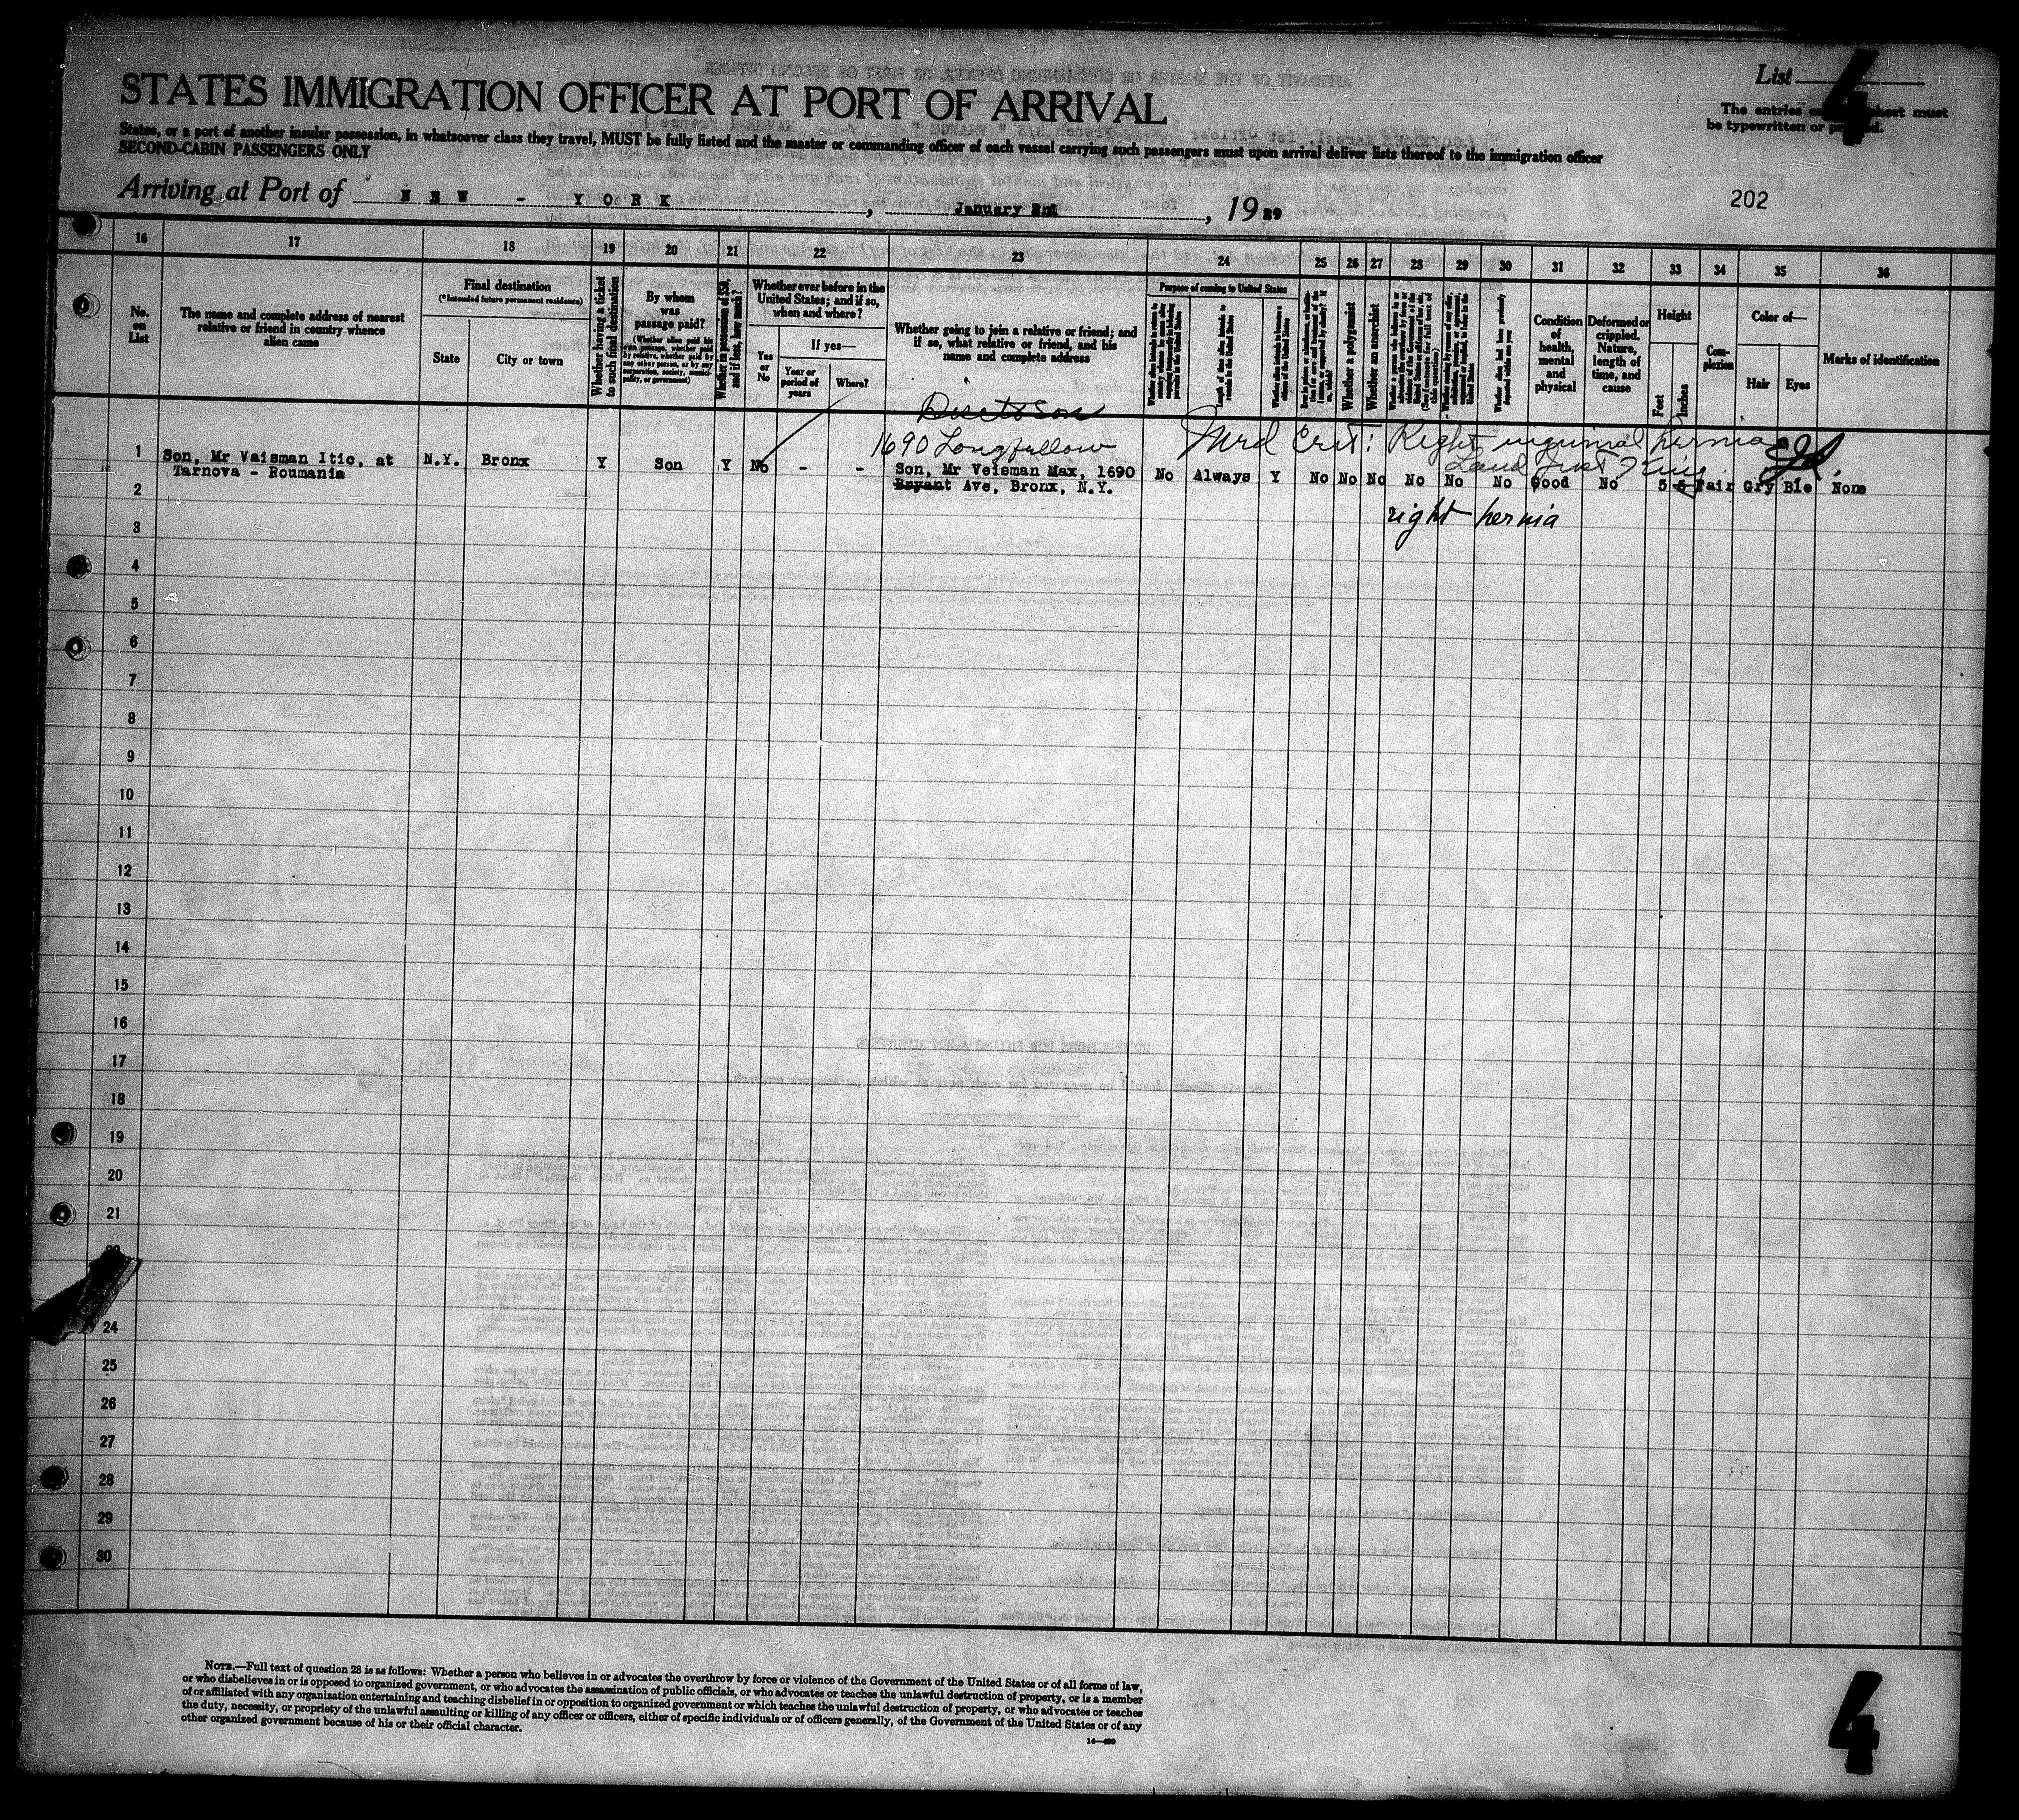 List 4
STATES IMMIGRATION OFFICER AT PORT OF ARRIVAL
The entries on sheet must
be typewritten or printed.
States, or a port of another insular possession, in whatsoever class they travel, MUST be fully listed and the master or commanding officer of each vessel carrying such passengers must upon arrival deliver lists thereof to the immigration officer
SECOND-CABIN PASSENGERS ONLY
Arriving at Port of NEW - YORK, January 3rd, 1929
202
16 17 18 19 20 21 22 23 24 25 26 27 28 29 30 31 32 33 34 35 36
No. on List
The name and complete address of nearest relative or friend in country whence alien came
Final destination
(*Intended future permanent residence)
State
City or town
Whether having a ticket to such final destination
By whom was passage paid?
(Whether alien paid his own passage, whether paid by relative, whether paid by any other person, or by any corporation, society, municipality, or government)
Whether in possession of $50, and if less, how much?
Whether ever before in the United States; and if so, when and where?
Yes or No
If yes—
Year or period of years
Where?
Whether going to join a relative or friend; and if so, what relative or friend, and his name and complete address
Purpose of coming to United States
Length of time alien intends to remain in the United States
Whether alien intends to become a citizen of the United States
Whether a polygamist
Whether an anarchist
Whether alien had been previously deported within one year
Condition of health, mental and physical
Deformed or crippled. Nature, length of time, and cause
Height
Feet
Inches
Complexion
Color of—
Hair
Eyes
Marks of identification
1690 Longfellow
Med Cert: Right inguinal hernia
1 Son, Mr Vaisman Itic, at N.Y. Bronx Y Son Y No - - Son, Mr Veisman Max, 1690 No Always Y No No No No No No Good No 5 5 Fair Gry Ble None
Tarnova - Roumania
Bryant Ave, Bronx, N.Y.
2
right hernia
3
4
5
6
7
8
9
10
11
12
13
14
15
16
17
18
19
20
21
24
25
26
27
28
29
30
NOTE.—Full text of question 28 is as follows: Whether a person who believes in or advocates the overthrow by force or violence of the Government of the United States or of all forms of law,
or who disbelieves in or is opposed to organized government, or who advocates the assassination of public officials, or who advocates or teaches the unlawful destruction of property, or is a member
of or affiliated with any organization entertaining and teaching disbelief in or opposition to organized government or which teaches the unlawful destruction of property, or who advocates or teaches
the duty, necessity, or propriety of the unlawful assaulting or killing of any officer or officers, either of specific individuals or of officers generally, of the Government of the United States or of any
other organized government because of his or their official character.
14—480
4